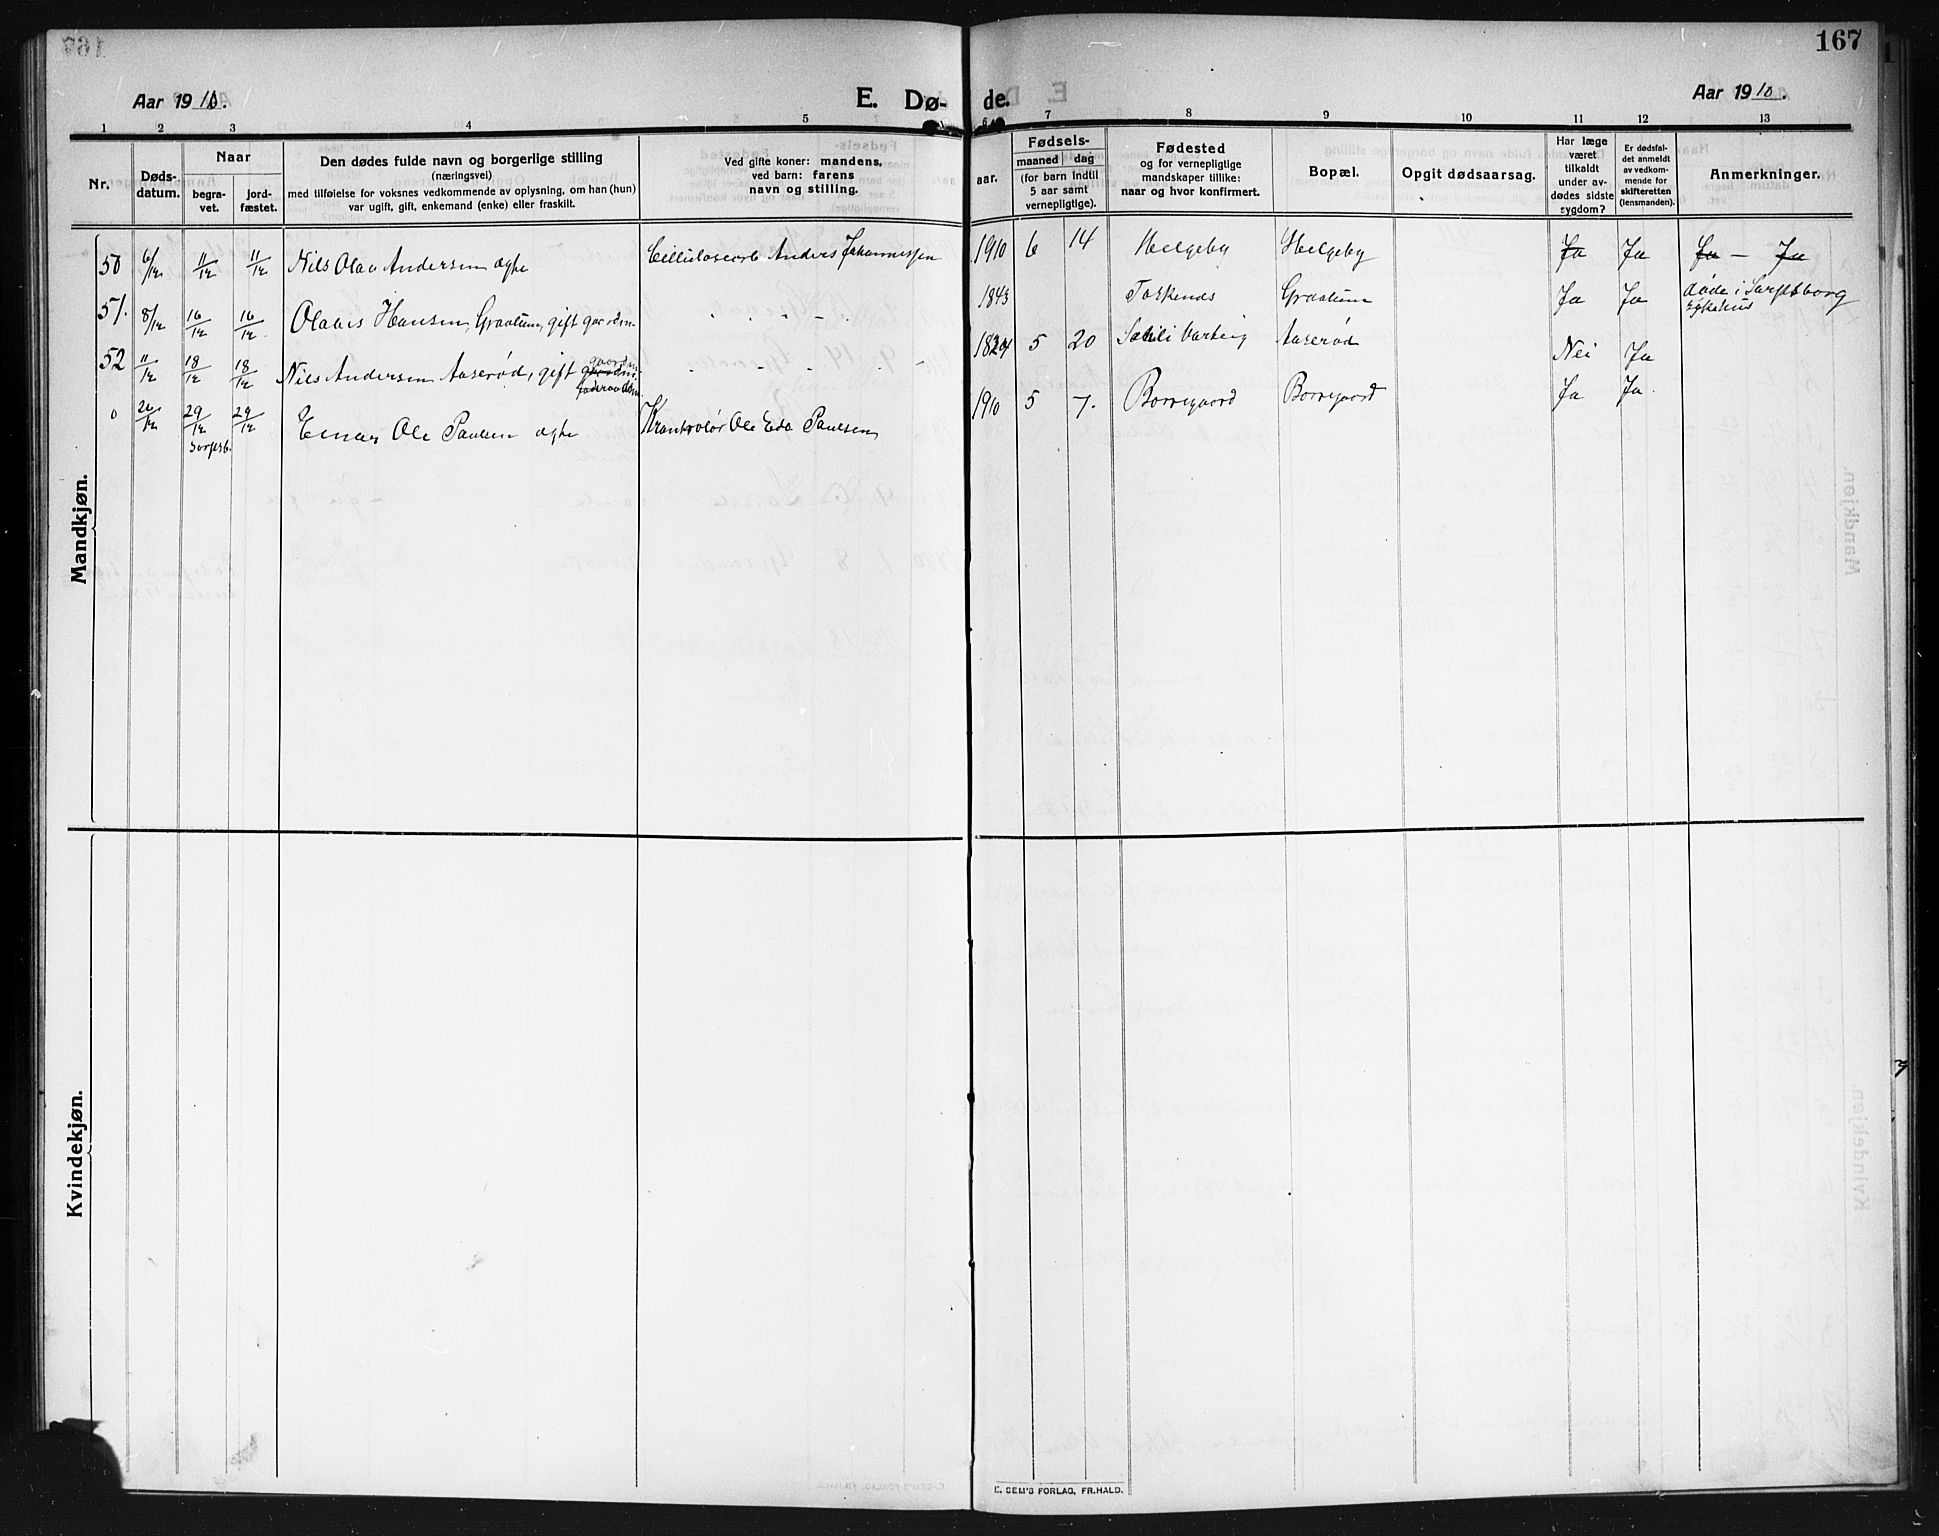 167
Aar 1910.
E. Dø-
de.
Aar 1910.
1 2 3 4 5 6 7 8 9 10 11 12 13
Nr.
Døds-
datum.
Naar
begra-
vet.
jord-
fæstet.
Den dødes fulde navn og borgerlige stilling
(næringsvei)
med tilføielse for voksnes vedkommende av oplysning, om han (hun)
var ugift, gift, enkemand (enke) eller fraskilt.
Ved gifte koner: mandens,
ved barn: farens
navn og stilling.
aar.
Fødsels-
maaned dag
(for barn indtil
5 aar samt
vernepligtige).
Fødested
og for vernepligtige
mandskaper tillike:
naar og hvor konfirmert.
Bopæl.
Opgit dødsaarsag.
Har læge
været
tilkaldt
under av-
dødes sidste
sygdom?
Er dødsfal-
det anmeldt
av vedkom-
mende for
skifteretten
(lensmanden).
Anmerkninger.
Mandkjøn.
50 6/12 11/12 11/12 Nils Olav Andersen ægte Cellulosearb Anders Johannessen 1910 6 14 Helgeby Helgeby Ja Ja Ja – Ja
51. 8/12 16/12 16/12 Olaves Hansen, Graatum, gift gaardm. 1843 Graatum Ja Ja døde i Sarpsborg
sykehus
52 11/12 18/12 18/12 Nils Andersen Aaserød, gift gaardm. 5 20 Varteig Aaserød Nei Ja
0 26/12 29/12 29/12 Einar Ole Paulsen ægte Ole Edv Paulsen 1910 5 7. Borregaard Borregaard Ja Ja.
Sarpsb.
Kvindekjøn.
E. SEM'S FORLAG, FR.HALD.